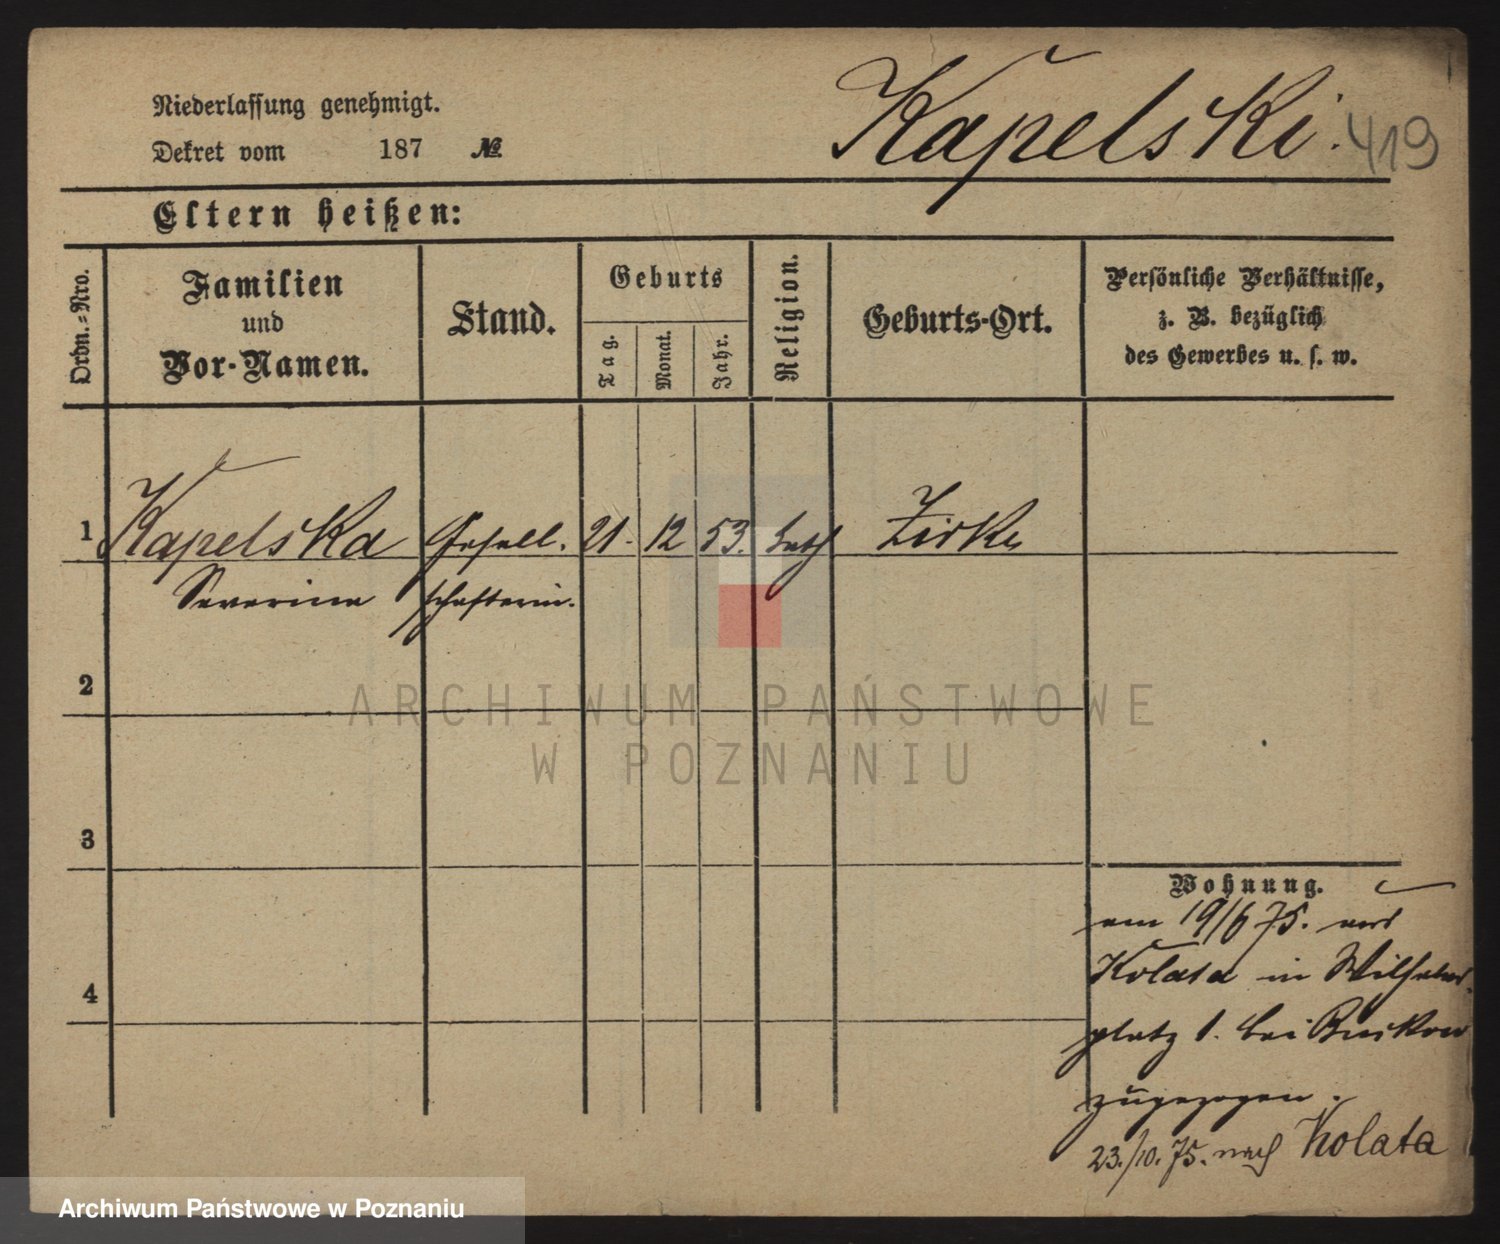 Niederlassung genehmigt.
Dekret vom 187 №
Kapelski. 419
Eltern heißen:
Ordn.-Nro.
Familien
und
Vor-Namen.
Stand.
Geburts
Tag.
Monat.
Jahr.
Religion.
Geburts-Ort.
Persönliche Verhältnisse,
z. B. bezüglich
des Gewerbes u. s. w.
1 Kapelska Gesell. 21. 12 53. kath Zirke
Severina schafterin.
2
3
4
Wohnung.
am 19/6 75. aus
Kolata in Wilhelms
platz 1. bei
zugezogen.
23./10. 75. nach Kolata
ARCHIWUM PAŃSTWOWE
W POZNANIU
Archiwum Państwowe w Poznaniu